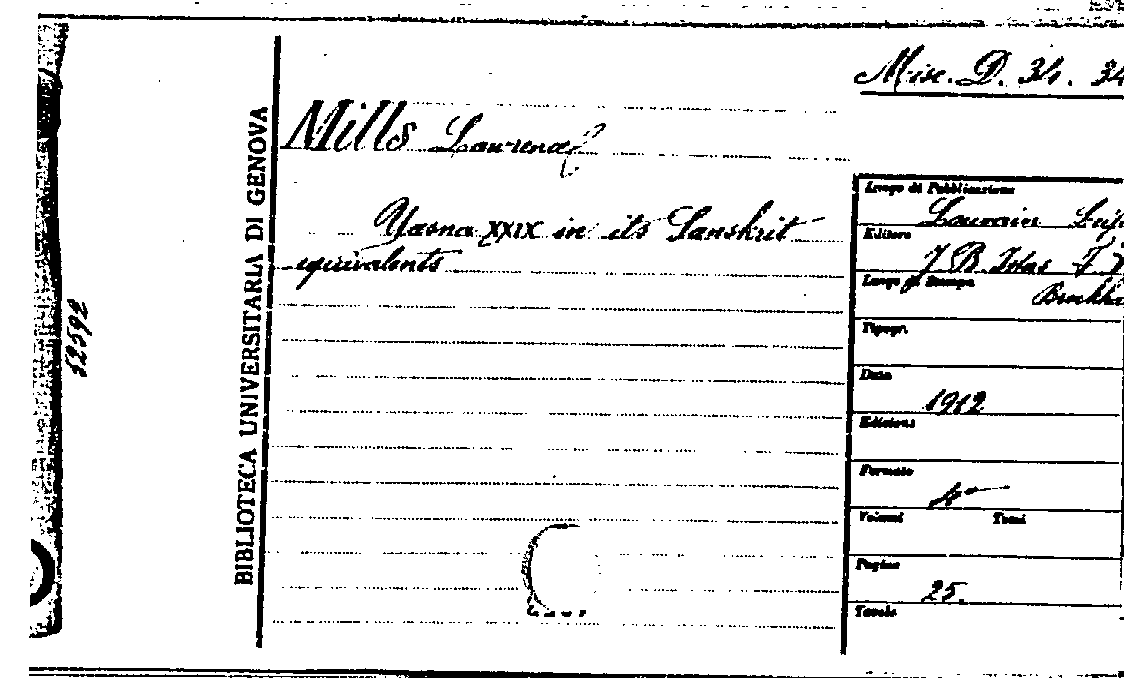 Misc. D. 34. 34
Mills Lawrence
Yasna XXIX in its Sanskrit
equivalents
BIBLIOTECA UNIVERSITARIA DI GENOVA
52592
Luogo di Pubblicazione
Louvain Leip
Editore
J B. Istas F.
Luogo di Stampa
Brockha
Tipogr.
Data
1912
Edizione
Formato
4°
Volumi Tomi
Pagine
25.
Tavole